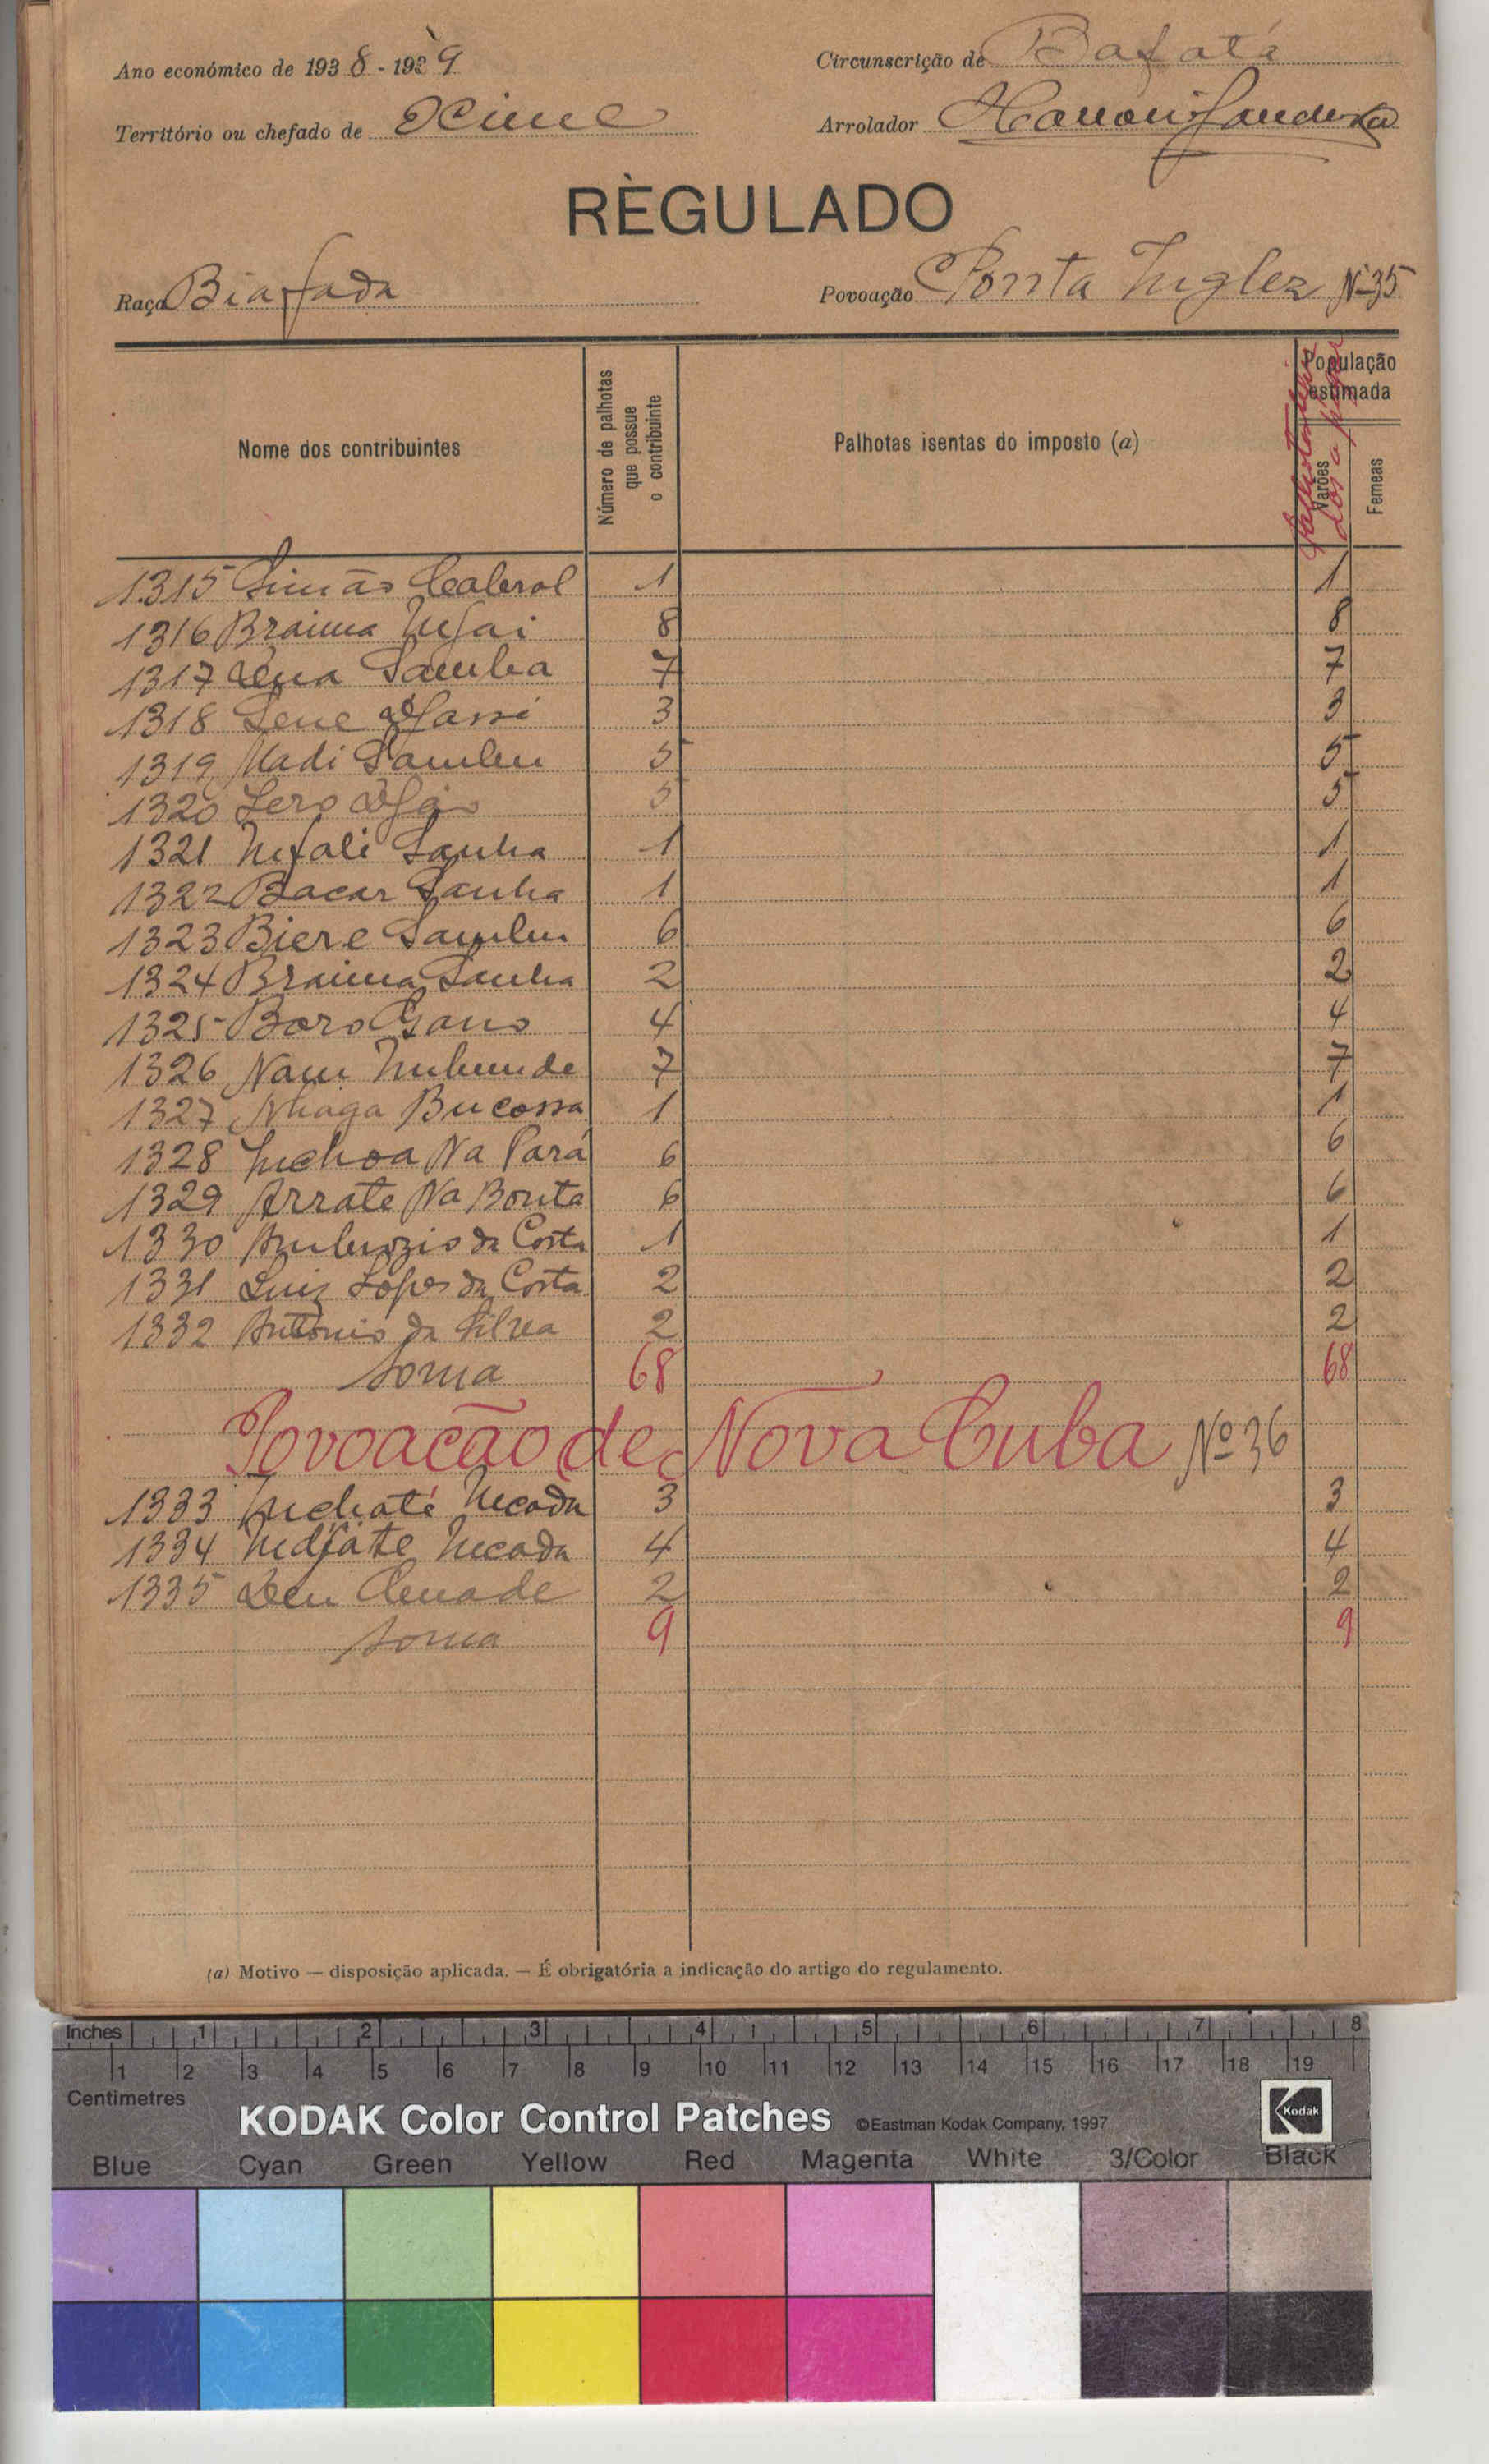 Ano económico de 1938-1939
Circunscrição de Bafatá
Território ou chefado de Xime
Arrolador
RÈGULADO
Raça Biafada
Povoação Ponta Inglez Nº 35
Nome dos contribuintes
Número de palhotas que possue o contribuinte
Palhotas isentas do imposto (a)
População estimada
Varões
Femeas
1315 Simão Cabral 1 1
1316 Braima Infai 8 8
1317 Samba 7 7
1318 Sene 3 3
1319 Madi Sambu 5 5
1320 5 5
1321 Infali Sanha 1 1
1322 Bacar Sanha 1 1
1323 Biere Sambu 6 6
1324 Braima Sanha 2 2
1325 Boro Gano 4 4
1326 7 7
1327 Nhaga Bucossa 1 1
1328 Inchoa Na Pará 6 6
1329 Arrate Na Bonta 6 6
1330 Ambrozio da Costa 1 1
1331 Luiz Lopes da Costa 2 2
1332 Antonio da Silva 2 2
Soma 68 68
Povoacão de Nova Cuba Nº 36
1333 Inchaté Incada 3 3
1334 Indjate Incada 4 4
1335 2 2
Soma 9 9
(a) Motivo — disposição aplicada. — É obrigatória a indicação do artigo do regulamento.
Inches 1 2 3 4 5 6 7 8
1 2 3 4 5 6 7 8 9 10 11 12 13 14 15 16 17 18 19
Centimetres
KODAK Color Control Patches ©Eastman Kodak Company, 1997 Kodak
Blue Cyan Green Yellow Red Magenta White 3/Color Black